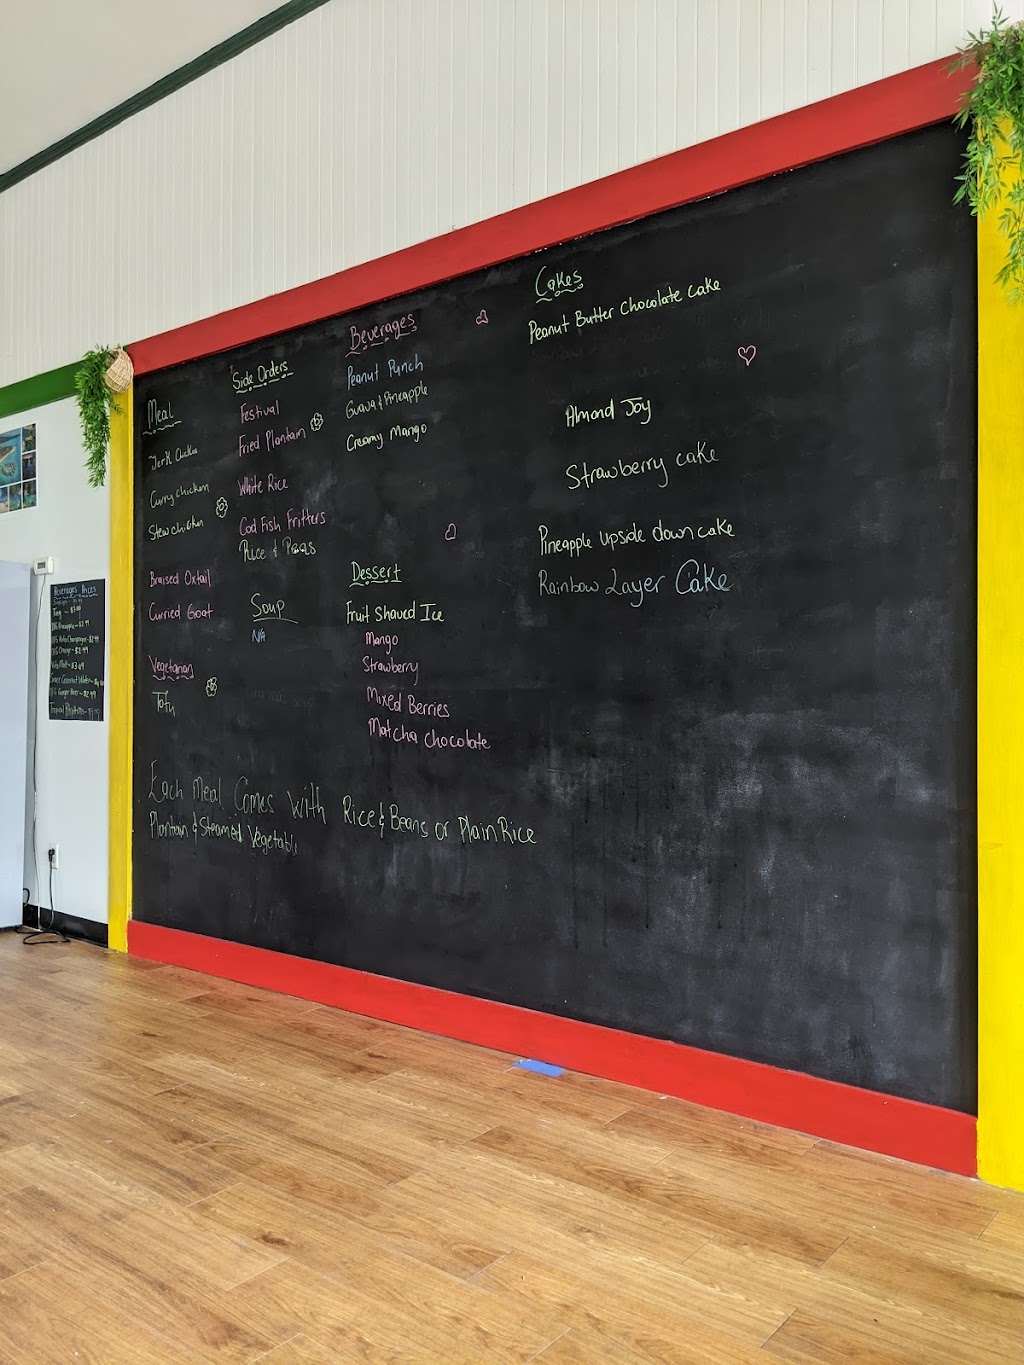 Meal
Jerk Chicken
Curry chicken
Stew chicken
Braised Oxtail
Curried Goat
Vegetarian
Tofu
Side Orders
Festival
Fried Plantain
White Rice
Cod Fish Fritters
Rice & Peas
Soup
NA
Beverages
Peanut Punch
Guava & Pineapple
Creamy Mango
Dessert
Fruit Shaved Ice
Mango
Strawberry
Mixed Berries
Matcha chocolate
Cakes
Peanut Butter Chocolate Cake
Almond Joy
Strawberry cake
Pineapple upside down cake
Rainbow Layer Cake
Each Meal Comes With Rice & Beans or Plain Rice
Plantain & Steamed Vegetable
Beverages Prices
Ting - $3.00
Pineapple - $2.99
Kola Champagne - $2.99
Orange - $2.99
Malt - $3.69
Coconut Water -
Ginger Beer - $2.99
Tropical Rhythms -